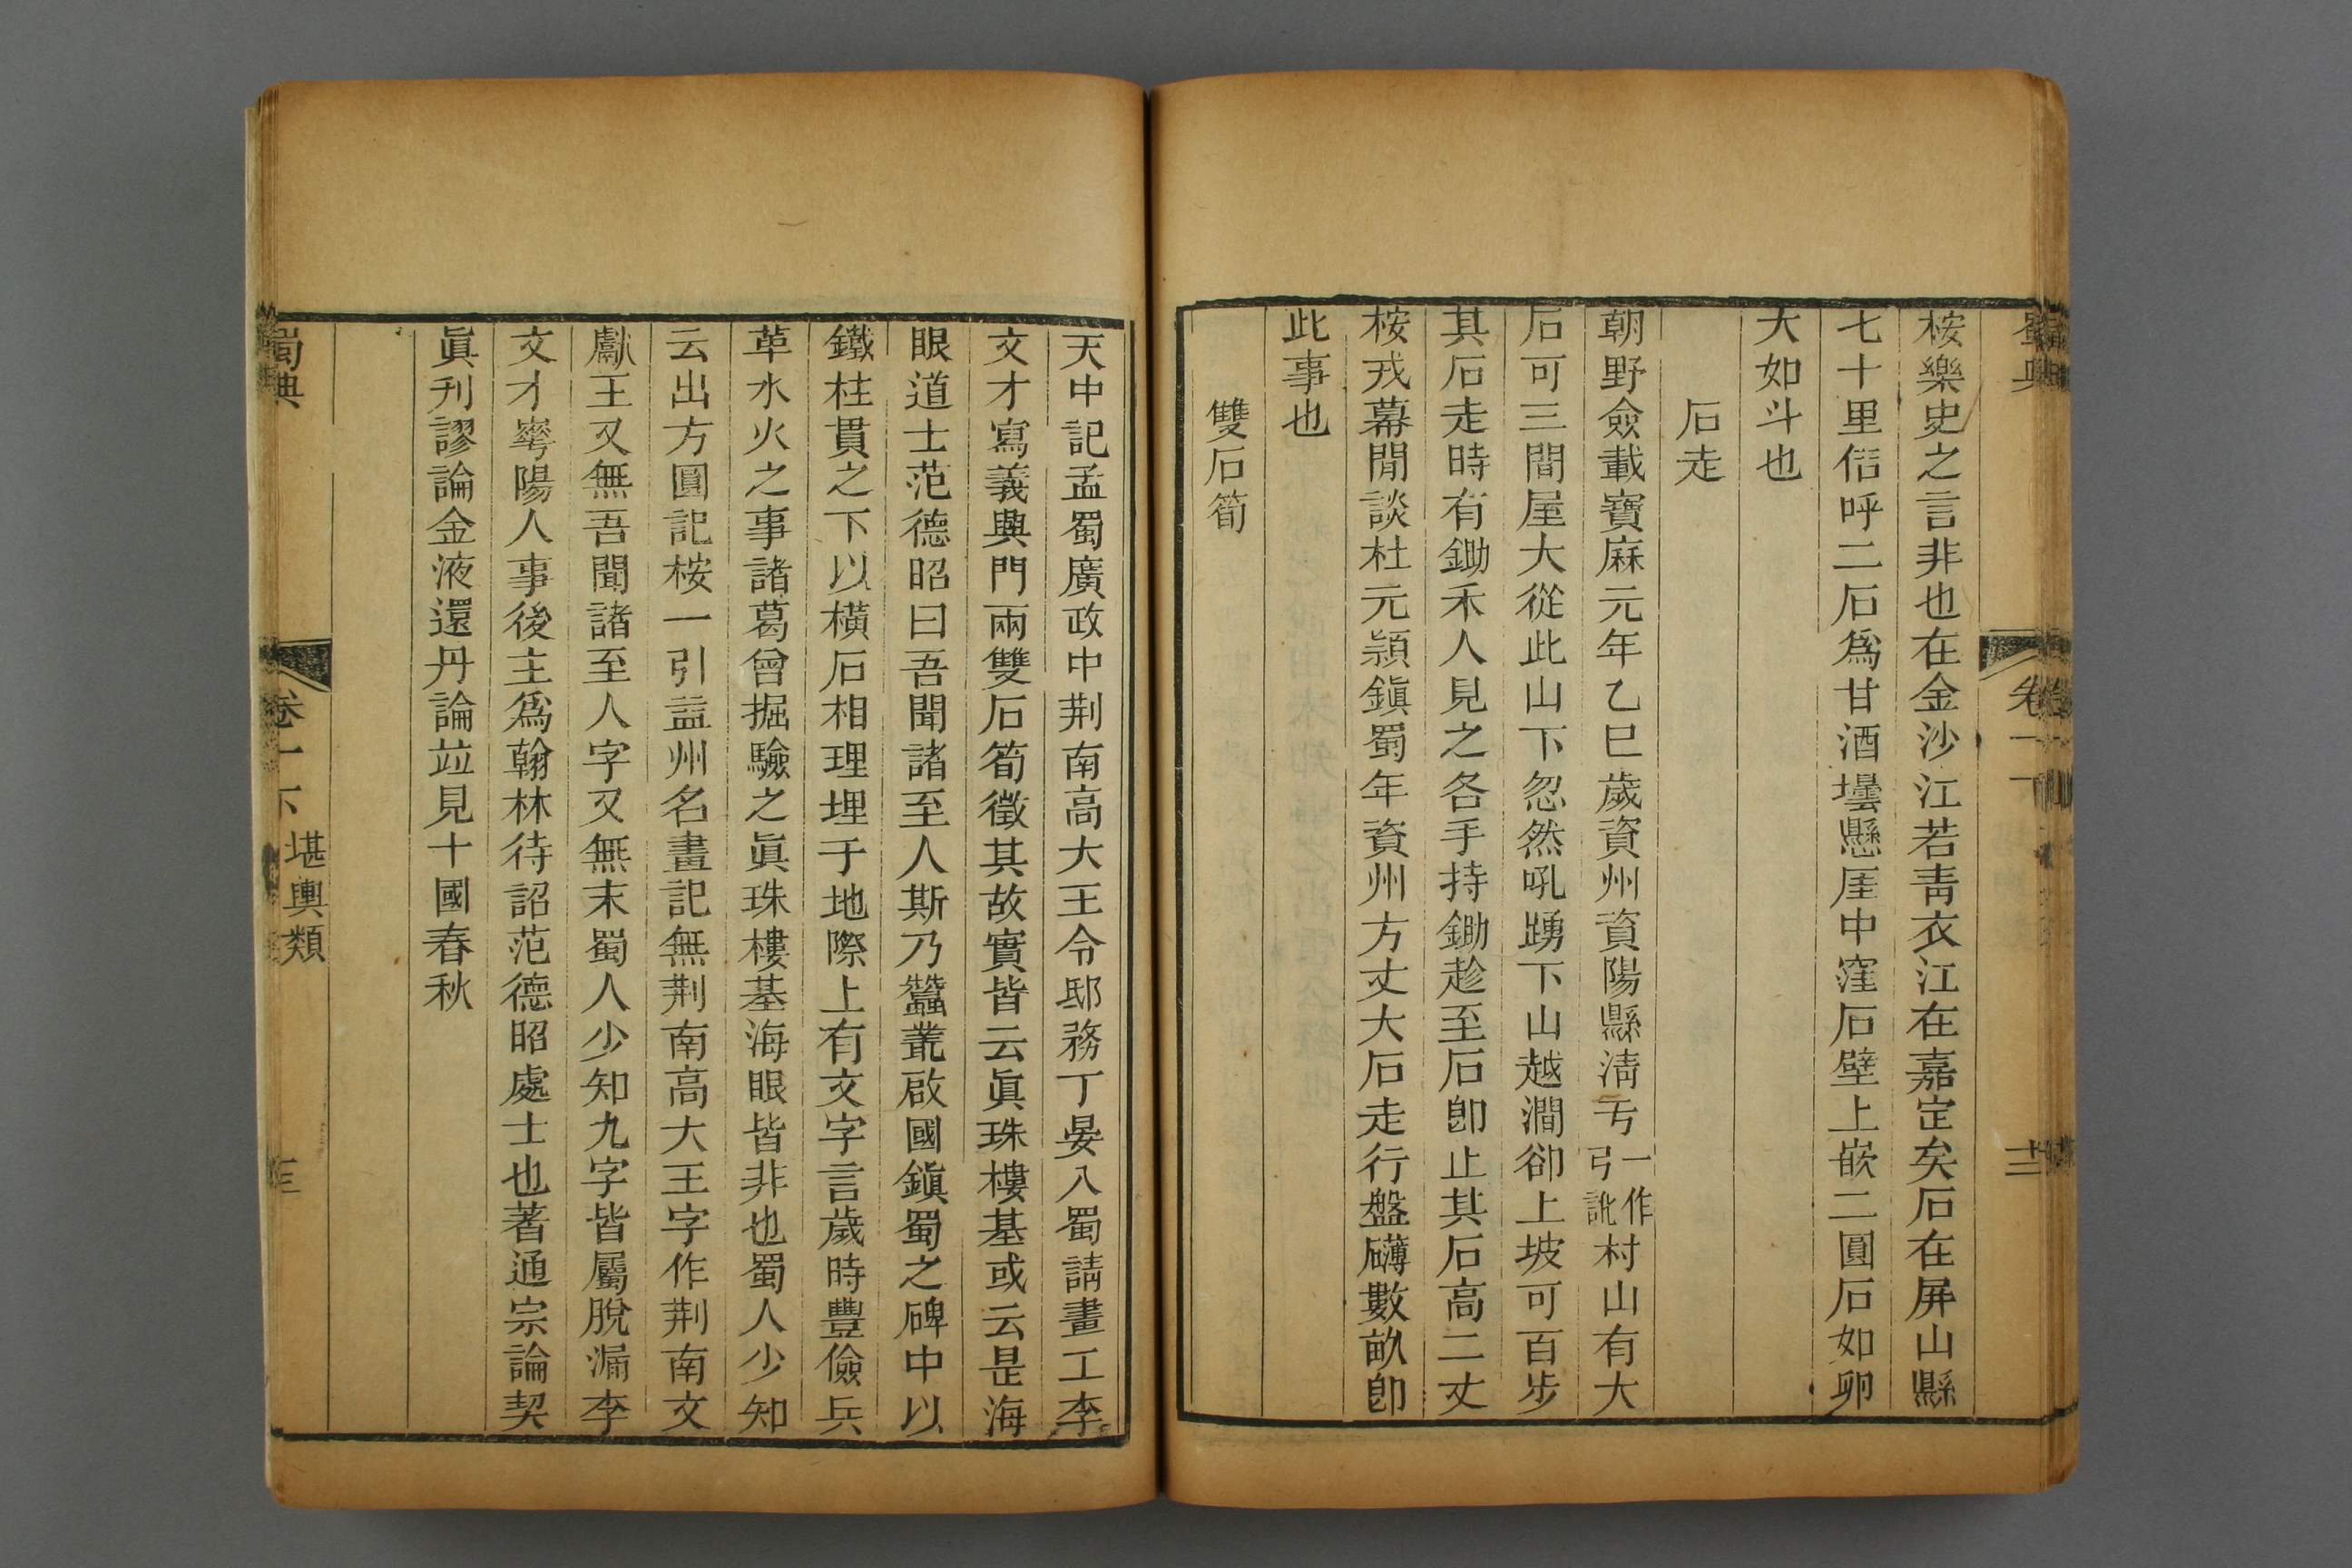 桉樂史之言非也在金沙江若靑衣江在嘉定矣石在屏山縣
七十里俗呼二石爲甘酒壜懸厓中窪石壁上嵌二圓石如卵
大如斗也
石走
朝野僉載寶麻元年乙巳歲資州資陽縣淸弓一作弓訛村山有大
石可三間屋大從此山下忽然吼踴下山越澗卻上坡可百步
其石走時有鋤禾人見之各手持鋤趁至石卽止其石高二丈
桉戎幕閒談杜元穎鎭蜀年資州方丈大石走行盤礴數畝卽
此事也
雙石筍
天中記孟蜀廣政中荆南高大王令邸務丁晏入蜀請畫工李
文才寫義興門兩雙石筍徵其故實皆云眞珠樓基或云是海
眼道士范德昭曰吾聞諸至人斯乃蠶叢啟國鎭蜀之碑中以
鐵柱貫之下以橫石相理埋于地際上有文字言歲時豐儉兵
革水火之事諸葛曾掘驗之眞珠樓基海眼皆非也蜀人少知
云出方圓記桉一引益州名畫記無荆南高大王字作荆南文
獻王又無吾聞諸至人字又無末蜀人少知九字皆屬脫漏李
文才華陽人事後主爲翰林待詔范德昭處士也著通宗論契
眞刋謬論金液還丹論竝見十國春秋
蜀典 卷一下 堪輿類